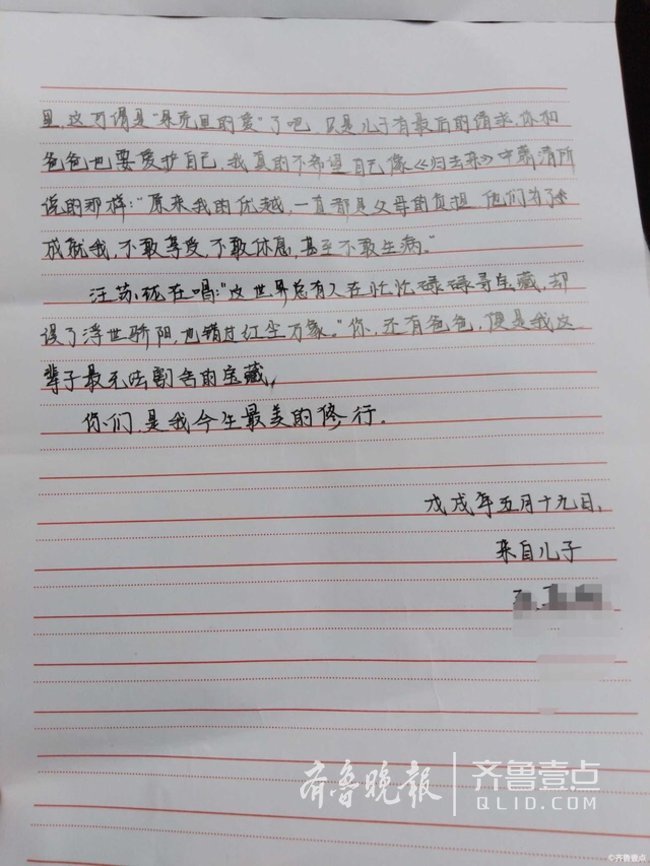 里,这可谓是"暴荒里的爱"了吧 只是儿子有最后的请求,你和
爸爸也要爱护自己,我真的不希望自己像《归去来》中萧清所
说的那样:"原来我的优越,一直都是父母的负担 他们为了
成就我,不敢享受,不敢休息,甚至不敢生病。"
汪苏泷在唱:"这世界总有人在忙忙碌碌寻宝藏,却
误了浮世骄阳,也错过红尘万象。"你,还有爸爸,便是我这
辈子最无法割舍的宝藏,
你们,是我今生最美的修行。
戊戌年五月十九日,
来自儿子
齐鲁晚报 齐鲁壹点
QLID.COM
©齐鲁壹点